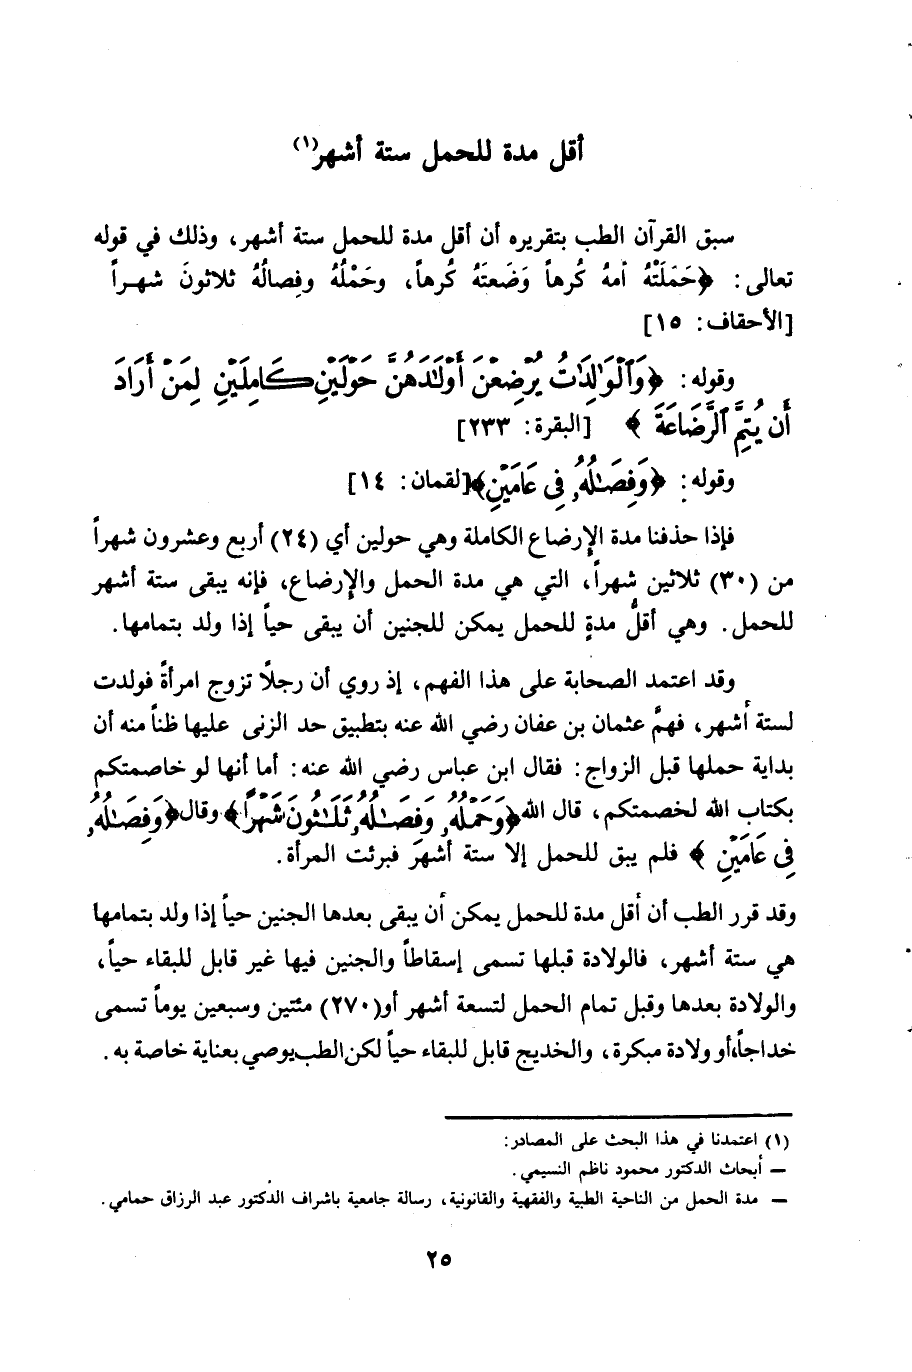 أقل مدة للحمل ستة أشهر(١)
سبق القرآن الطب بتقريره أن أقل مدة للحمل ستة أشهر، وذلك في قوله
تعالى: ﴿حَمَلَتْهُ أمهُ كُرهاً وَضَعتَهُ كُرهاً، وحَمْلُهُ وفِصالُهُ ثلاثونَ شهراً
[الأحقاف: ١٥]
وقوله: ﴿وَٱلْوَٰلِدَٰتُ يُرْضِعْنَ أَوْلَٰدَهُنَّ حَوْلَيْنِ كَامِلَيْنِ لِمَنْ أَرَادَ
أَن يُتِمَّ ٱلرَّضَاعَةَ ﴾ [البقرة: ٢٣٣]
وقوله: ﴿وَفِصَٰلُهُۥ فِى عَامَيْنِ﴾[لقمان: ١٤]
فإذا حذفنا مدة الإرضاع الكاملة وهي حولين أي (٢٤) أربع وعشرون شهراً
من (٣٠) ثلاثين شهراً، التي هي مدة الحمل والإرضاع، فإنه يبقى ستة أشهر
للحمل. وهي أقلُّ مدةٍ للحمل يمكن للجنين أن يبقى حياً إذا ولد بتمامها.
وقد اعتمد الصحابة على هذا الفهم، إذ روي أن رجلاً تزوج امرأةً فولدت
لستة أشهر، فهمَّ عثمان بن عفان رضي الله عنه بتطبيق حد الزنى عليها ظناً منه أن
بداية حملها قبل الزواج: فقال ابن عباس رضي الله عنه: أما أنها لو خاصمتكم
بكتاب الله لخصمتكم، قال الله ﴿وَحَمْلُهُۥ وَفِصَٰلُهُۥ ثَلَٰثُونَ شَهْرًا﴾ وقال ﴿وَفِصَٰلُهُۥ
فِى عَامَيْنِ ﴾ فلم يبق للحمل إلا ستة أشهر فبرئت المرأة.
وقد قرر الطب أن أقل مدة للحمل يمكن أن يبقى بعدها الجنين حياً إذا ولد بتمامها
هي ستة أشهر، فالولادة قبلها تسمى إسقاطاً والجنين فيها غير قابل للبقاء حياً،
والولادة بعدها وقبل تمام الحمل لتسعة أشهر أو(٢٧٠) مئتين وسبعين يوماً تسمى
خداجاً،أو ولادة مبكرة، والخديج قابل للبقاء حياً لكن الطب يوصي بعناية خاصة به.
(١) اعتمدنا في هذا البحث على المصادر:
— أبحاث الدكتور محمود ناظم النسيمي.
— مدة الحمل من الناحية الطبية والفقهية والقانونية، رسالة جامعية باشراف الدكتور عبد الرزاق حمامي.
٢٥